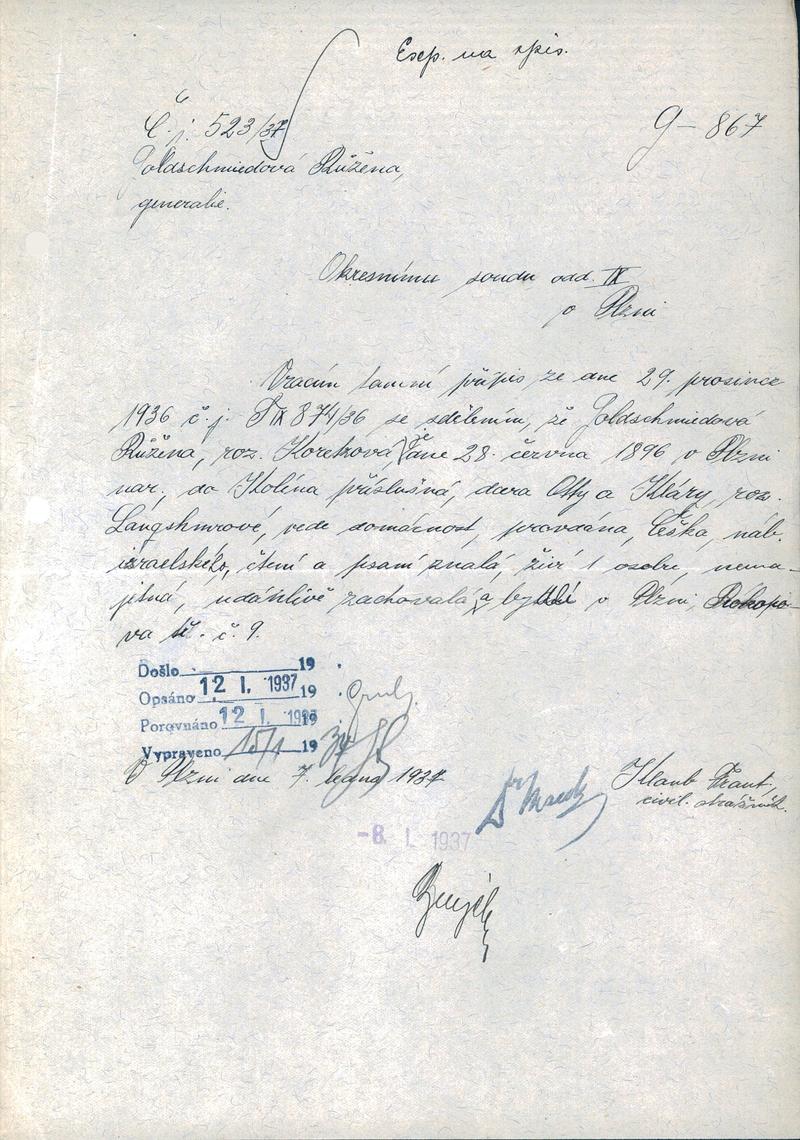 Exp. na spis.
Č. j. 523/37
G – 867
Goldschmiedová Růžena,
generalie.
Okresnímu soudu odd. IX
v Plzni
Vracím tamní přípis ze dne 29. prosince
1936 č. j. T IX 874/36 se sdělením, že Goldschmiedová
Růžena, roz. dne 28. června 1896 v Plzni
nar., do Kolína příslušná, dcera Otty a Kláry, roz.
vede domácnost, provdána, Češka, náb.
israelského, čtení a psaní znalá, živí 1 osobu, nema-
jetná, udánlivě zachovalá a bydlí v Plzni, Prokopo-
va tř. č. 9.
Došlo 19
Opsáno 12 I. 1937 19
Porovnáno 12 I. 1937 19
Vypraveno 15/1 19 37
V Plzni dne 7. ledna 1937
Klaub Frant.,
civil. strážník.
-8. I. 1937